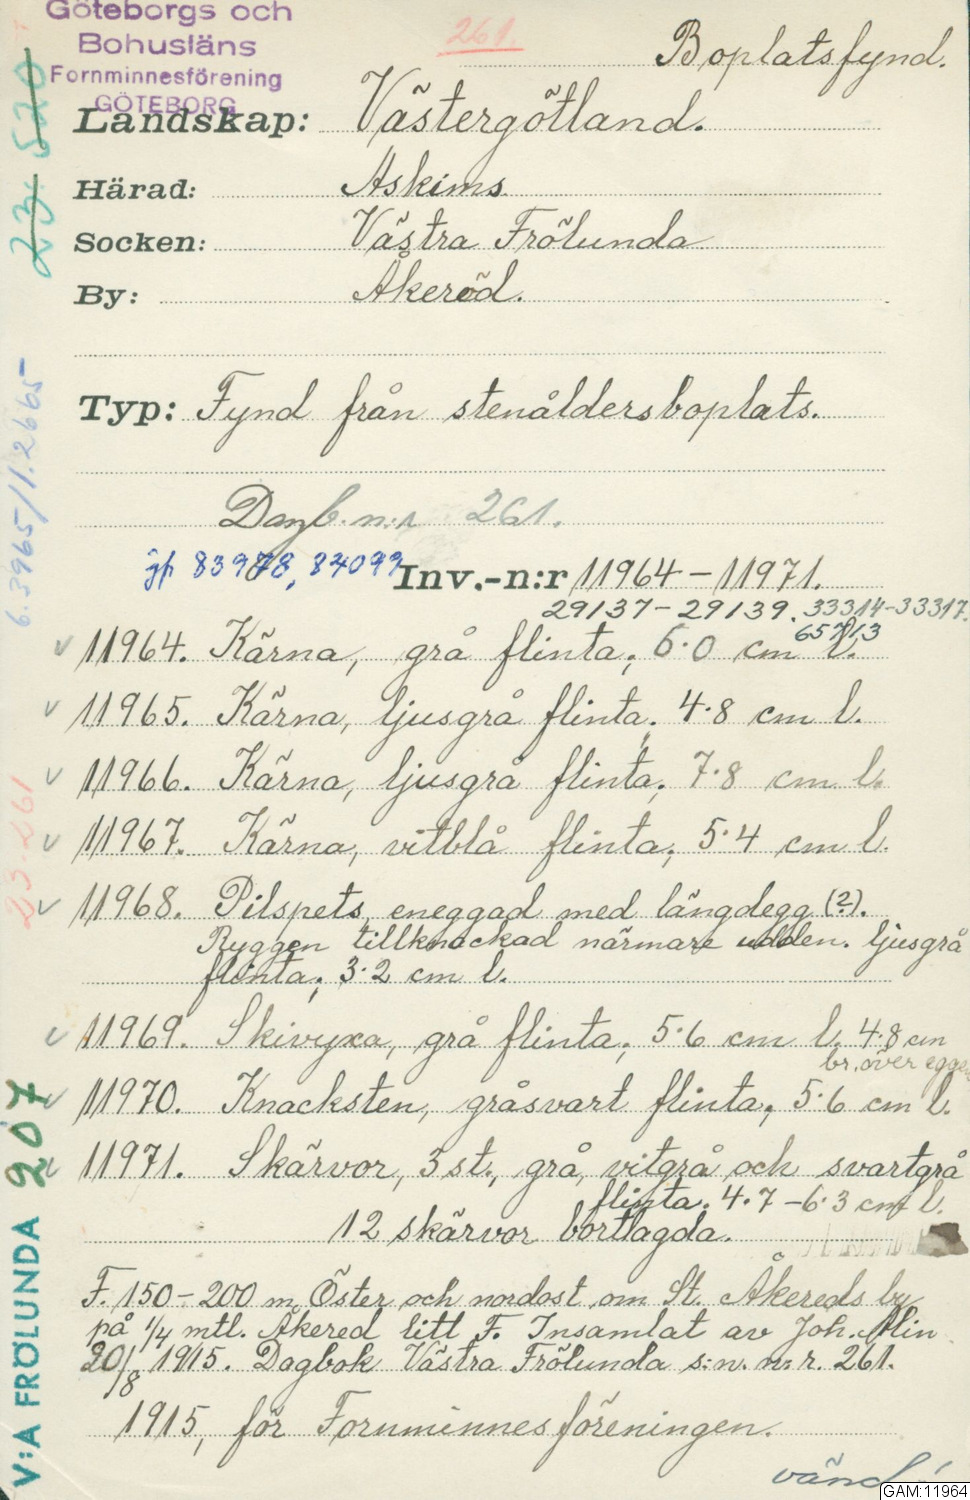 Göteborgs och
Bohusläns
Fornminnesförening
GÖTEBORG
261.
Boplatsfynd.
Landskap: Västergötland.
Härad: Askims
Socken: Västra Frölunda
By: Åkeröd.
Typ: Fynd från stenåldersboplats.
Dagb. n:r 261.
jfr 83978, 84099
Inv.-n:r 11964–11971.
29137–29139. 33314–33317.
65713
11964. Kärna, grå flinta; 6·0 cm l.
11965. Kärna, ljusgrå flinta; 4·8 cm l.
11966. Kärna, ljusgrå flinta; 7·8 cm l.
11967. Kärna, vitblå flinta; 5·4 cm l.
11968. Pilspets, eneggad med längdegg (?).
Ryggen tillknackad närmare udden. ljusgrå
flinta; 3·2 cm l.
11969. Skivyxa, grå flinta; 5·6 cm l. 4·8 cm
br. över eggen
11970. Knacksten, gråsvart flinta; 5·6 cm l.
11971. Skärvor, 3 st., grå, vitgrå och svartgrå
flinta. 4·7–6·3 cm l.
12 skärvor bortlagda.
F. 150–200 m Öster och nordost om St. Åkereds by
på 1/4 mtl. Åkered litt F. Insamlat av Joh. Alin
20/8 1915. Dagbok Västra Frölunda s:n. n:r. 261.
1915, för Fornminnesföreningen.
vänd!
23·520
6.3965/1.2665
23·261
V:A FRÖLUNDA 207
GAM:11964